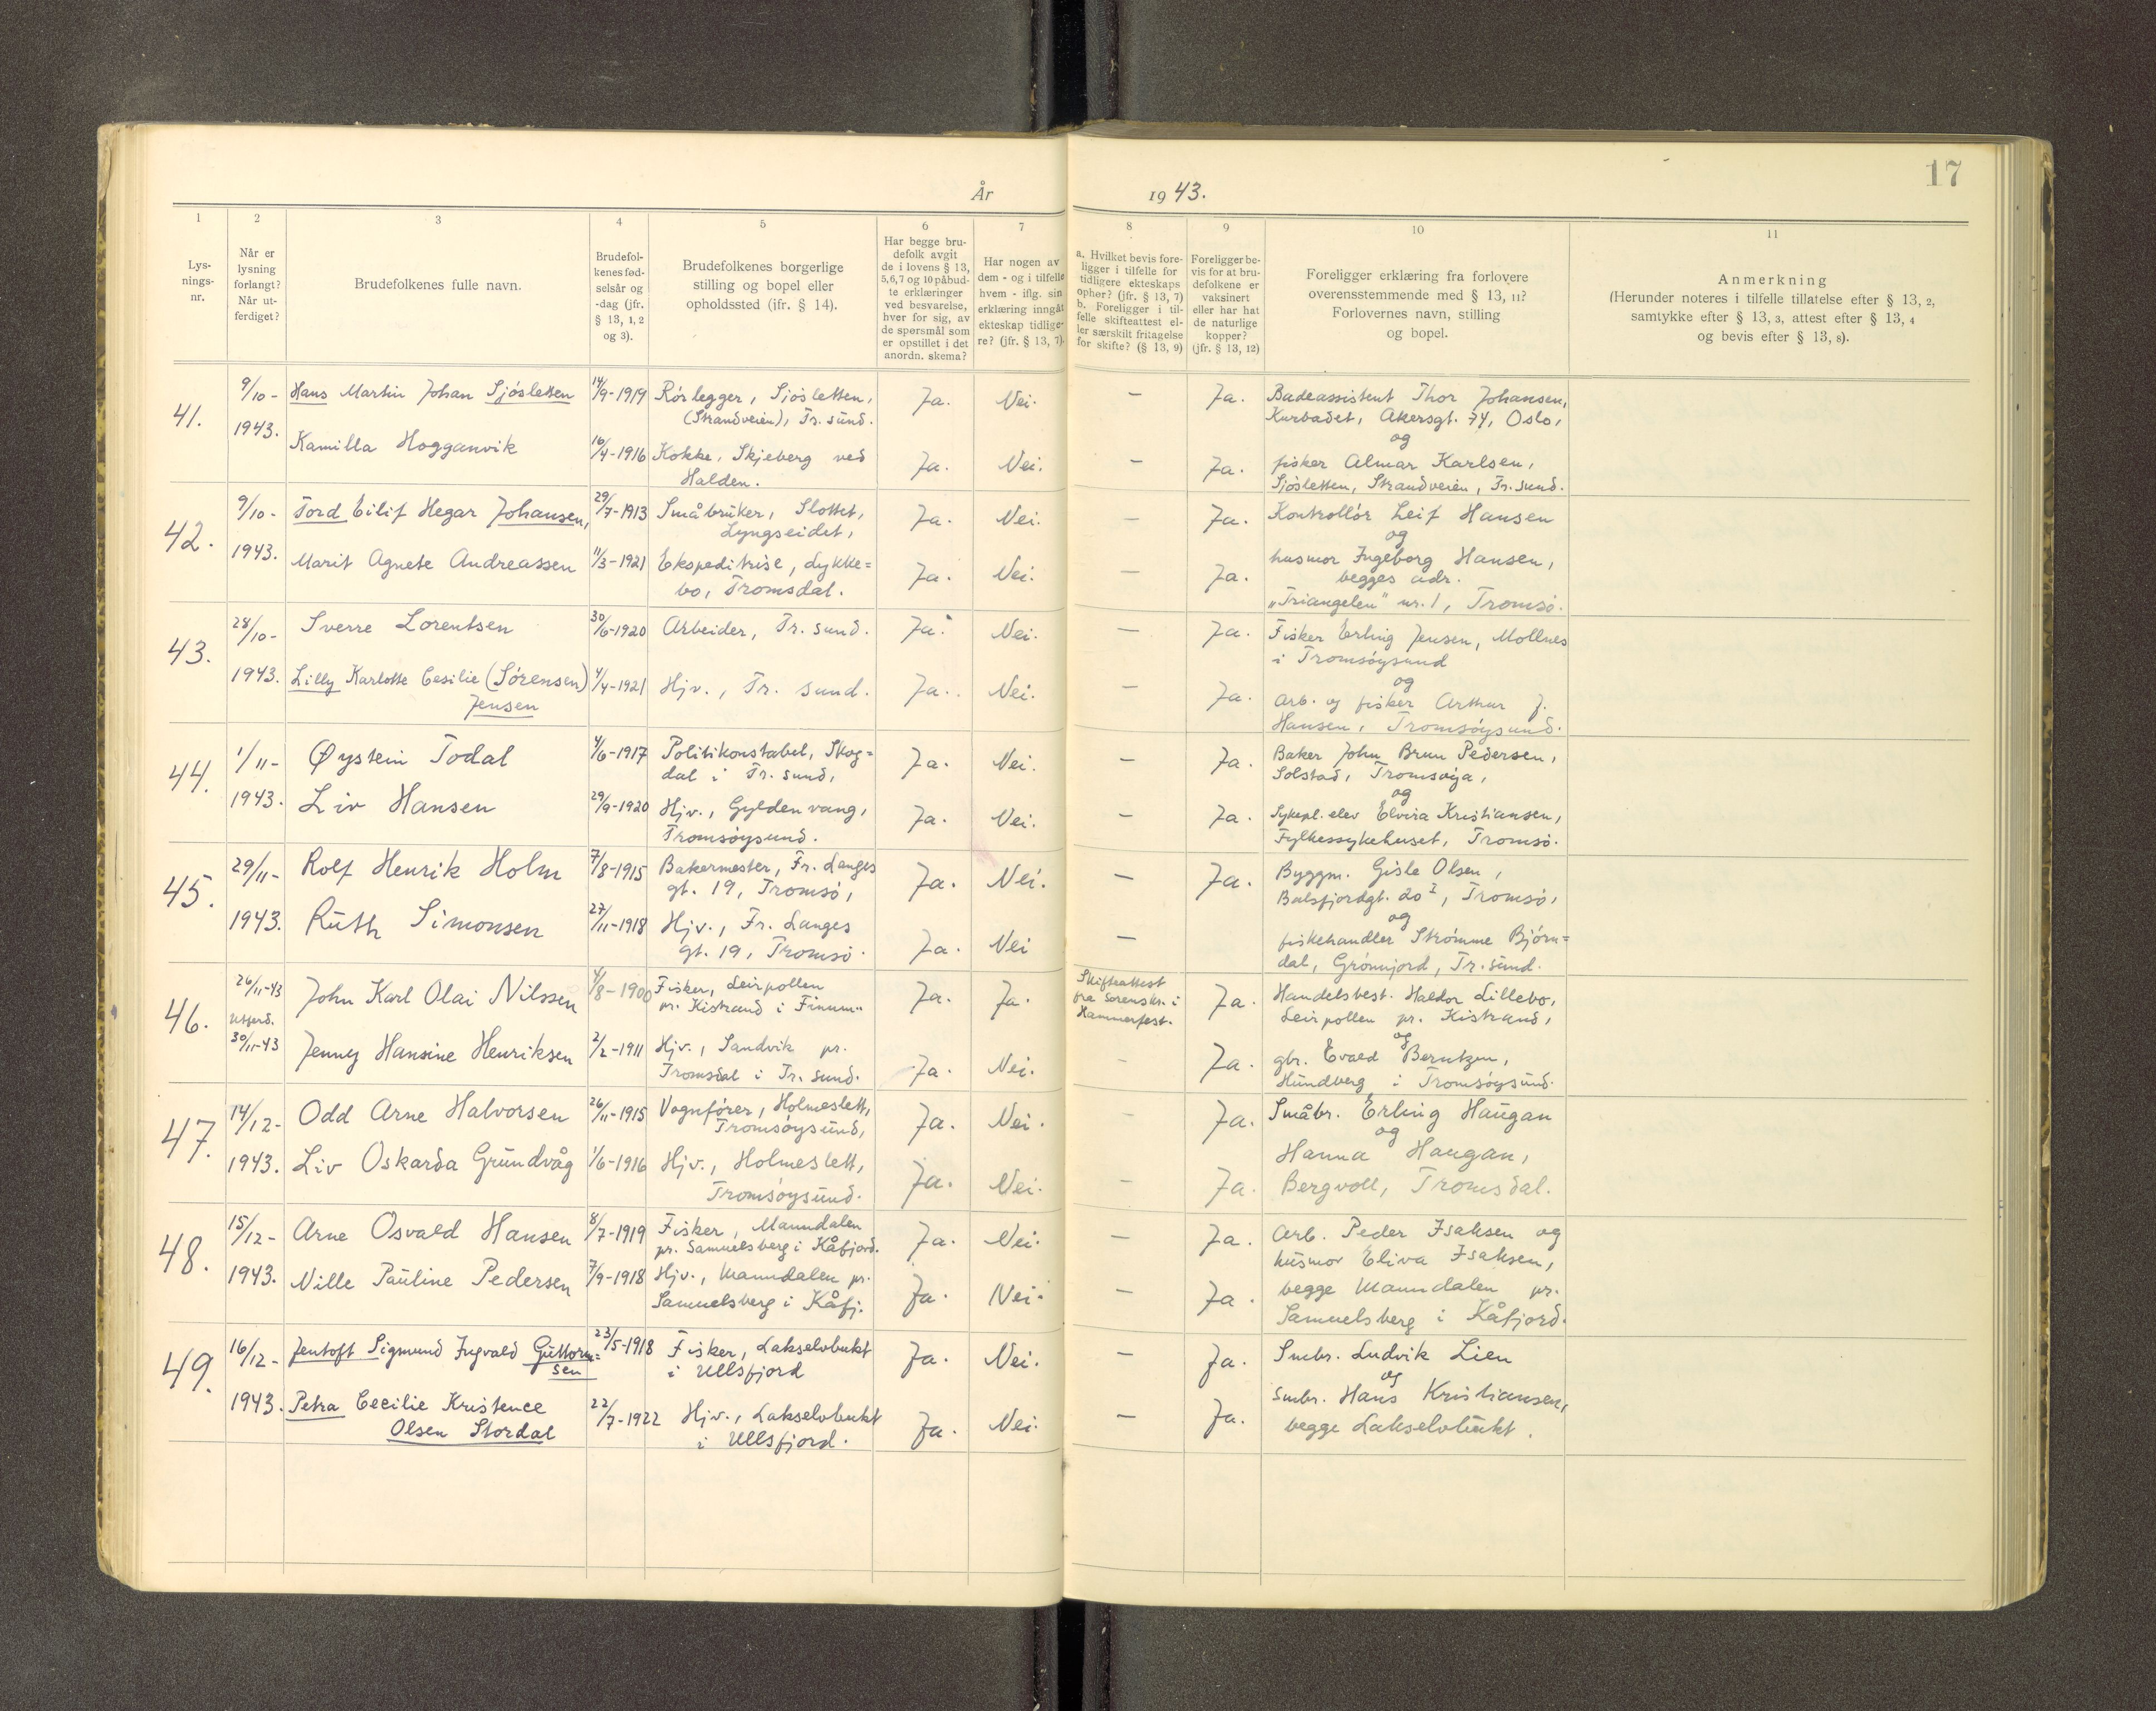 17
År 1943.
1
2
3
4
5
6
7
8
9
10
11
Lys-
nings-
nr.
Når er
lysning
forlangt?
Når ut-
ferdiget?
Brudefolkenes fulle navn.
Brudefol-
kenes fød-
selsår og
-dag (jfr.
§ 13, 1, 2
og 3).
Brudefolkenes borgerlige
stilling og bopel eller
opholdssted (ifr. § 14).
Har begge bru-
defolk avgit
de i lovens § 13,
5,6,7 og 10 påbud-
te erklæringer
ved besvarelse,
hver for sig, av
de spørsmål som
er opstillet i det
anordn. skema?
Har nogen av
dem - og i tilfelle
hvem - iflg. sin
erklæring inngåt
ekteskap tidlige-
re? (jfr. § 13, 7).
a. Hvilket bevis fore-
ligger i tilfelle for
tidligere ekteskaps
ophør? (jfr. § 13, 7)
b. Foreligger i til-
felle skifteattest el-
ler særskilt fritagelse
for skifte? (§ 13, 9)
Foreligger be-
vis for at bru-
defolkene er
vaksinert
eller har hat
de naturlige
kopper?
(jfr. § 13, 12)
Foreligger erklæring fra forlovere
overensstemmende med § 13, 11?
Forlovernes navn, stilling
og bopel.
Anmerkning
(Herunder noteres i tilfelle tillatelse efter § 13, 2,
samtykke efter § 13, 3, attest efter § 13, 4
og bevis efter § 13, 8).
41.
9/10-
1943.
Hans Martin Johan Sjösletten
14/9-1919
Rörlegger, Sjösletten,
(Strandveien), Tr. sund.
Ja.
Nei.
—
Ja.
Badeassistent Thor Johansen,
Kurbadet, Akersgt. 74, Oslo,
og
Kamilla Hogganvik
16/4-1916
Kokke, Skjeberg ved
Halden.
Ja.
Nei.
—
Ja.
fisker Almar Karlsen,
Sjösletten, Strandveien, Tr. sund.
42.
9/10-
1943.
Tord Eilif Hegar Johansen,
29/7-1913
Småbruker, Slottet,
Lyngseidet,
Ja.
Nei.
—
Ja.
Kontrollör Leif Hansen
og
Marit Agnete Andreassen
11/3-1921
Ekspeditrise, Lykke=
bo, Tromsdal.
Ja.
Nei.
—
Ja.
husmor Ingeborg Hansen,
begges adr.
"Triangelen" nr. 1, Tromsö.
43.
28/10-
1943.
Sverre Lorentsen
30/6-1920
Arbeider, Tr. sund.
Ja.
Nei.
—
Ja.
Fisker Erling Jensen, Mollnes
i Tromsöysund
og
Lilly Karlotte Cesilie (Sörensen)
Jensen
4/4-1921
Hjv., Tr. sund.
Ja.
Nei.
—
Ja.
Arb. og fisker Arthur J.
Hansen, Tromsöysund.
44.
1/11-
1943.
Øystein Todal
4/6-1917
Politikonstabel, Skog=
dal i Tr. sund,
Ja.
Nei.
—
Ja.
Baker John Brun Pedersen,
Solstad, Tromsöya,
og
Liv Hansen
29/9-1920
Hjv., Gyldenvang,
Tromsöysund.
Ja.
Nei.
—
Ja.
Sykepl. elev Elvira Kristiansen,
Fylkessykehuset, Tromsö.
45.
29/11-
1943.
Rolf Henrik Holm
7/8-1915
Bakermester, Fr. Langes
gt. 19, Tromsö,
Ja.
Nei.
—
Ja.
Byggm. Gisle Olsen,
Balsfjordgt. 20 I, Tromsö,
og
Ruth Simonsen
27/11-1918
Hjv., Fr. Langes
gt. 19, Tromsö.
Ja.
Nei
—
fiskehandler Strömme Björn=
dal, Grönnjord, Tr. sund.
46.
26/11-43
utferd.
30/11-43
John Karl Olai Nilssen
4/8-1900
Fisker, Leirpollen
pr. Kistrand i Finnm.
Ja.
Ja.
Skifteattest
fra Sorenskr. i
Hammerfest.
Ja.
Handelsbest. Haldor Lillebo,
Leirpollen pr. Kistrand,
og
Jenny Hansine Henriksen
2/2-1911
Hjv., Sandvik pr.
Tromsdal i Tr. sund.
Ja.
Nei.
—
Ja.
gbr. Evald Berntzen,
Hundberg i Tromsöysund.
47.
14/12-
1943.
Odd Arne Halvorsen
26/11-1915
Vognförer, Holmeslett,
Tromsöysund,
Ja.
Nei.
—
Ja.
Småbr. Erling Haugan
og
Liv Oskarda Grundvåg
1/6-1916
Hjv., Holmeslett,
Tromsöysund.
Ja.
Nei.
—
Ja.
Hanna Haugan,
Bergvoll, Tromsdal.
48.
15/12-
1943.
Arne Osvald Hansen
8/7-1919
Fisker, Manndalen
pr. Samuelsberg i Kåfjord.
Ja.
Nei.
—
Ja.
Arb. Peder Isaksen og
husmor Eliva Isaksen,
Nille Pauline Pedersen
7/9-1918
Hjv., Manndalen pr.
Samuelsberg i Kåfj.
Ja.
Nei.
—
Ja.
begge Manndalen pr.
Samuelsberg i Kåfjord.
49.
16/12-
1943.
Jentoft Sigmund Ingvald Guttorm=
sen
23/5-1918
Fisker, Lakselvbukt
i Ullsfjord
Ja.
Nei.
—
Ja.
Smbr. Ludvik Lien
og
Petra Cecilie Kristence
Olsen Stordal
22/7-1922
Hjv., Lakselvbukt
i Ullsfjord.
Ja.
Nei.
—
Ja.
smbr. Hans Kristiansen,
begge Lakselvbukt.